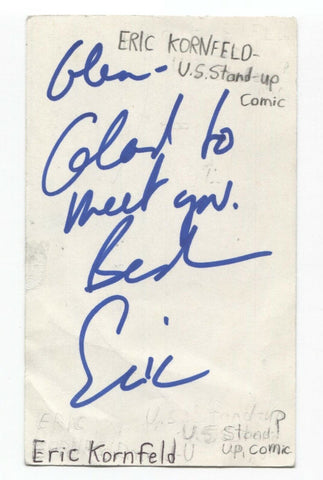 ERIC KORNFELD-
U.S. Stand-up
Comic
Glen-
Glad to
meet you.
Best
Eric
ERIC
U.S. Stand-up
Eric Kornfeld
U.S. Stand-
up, Comic